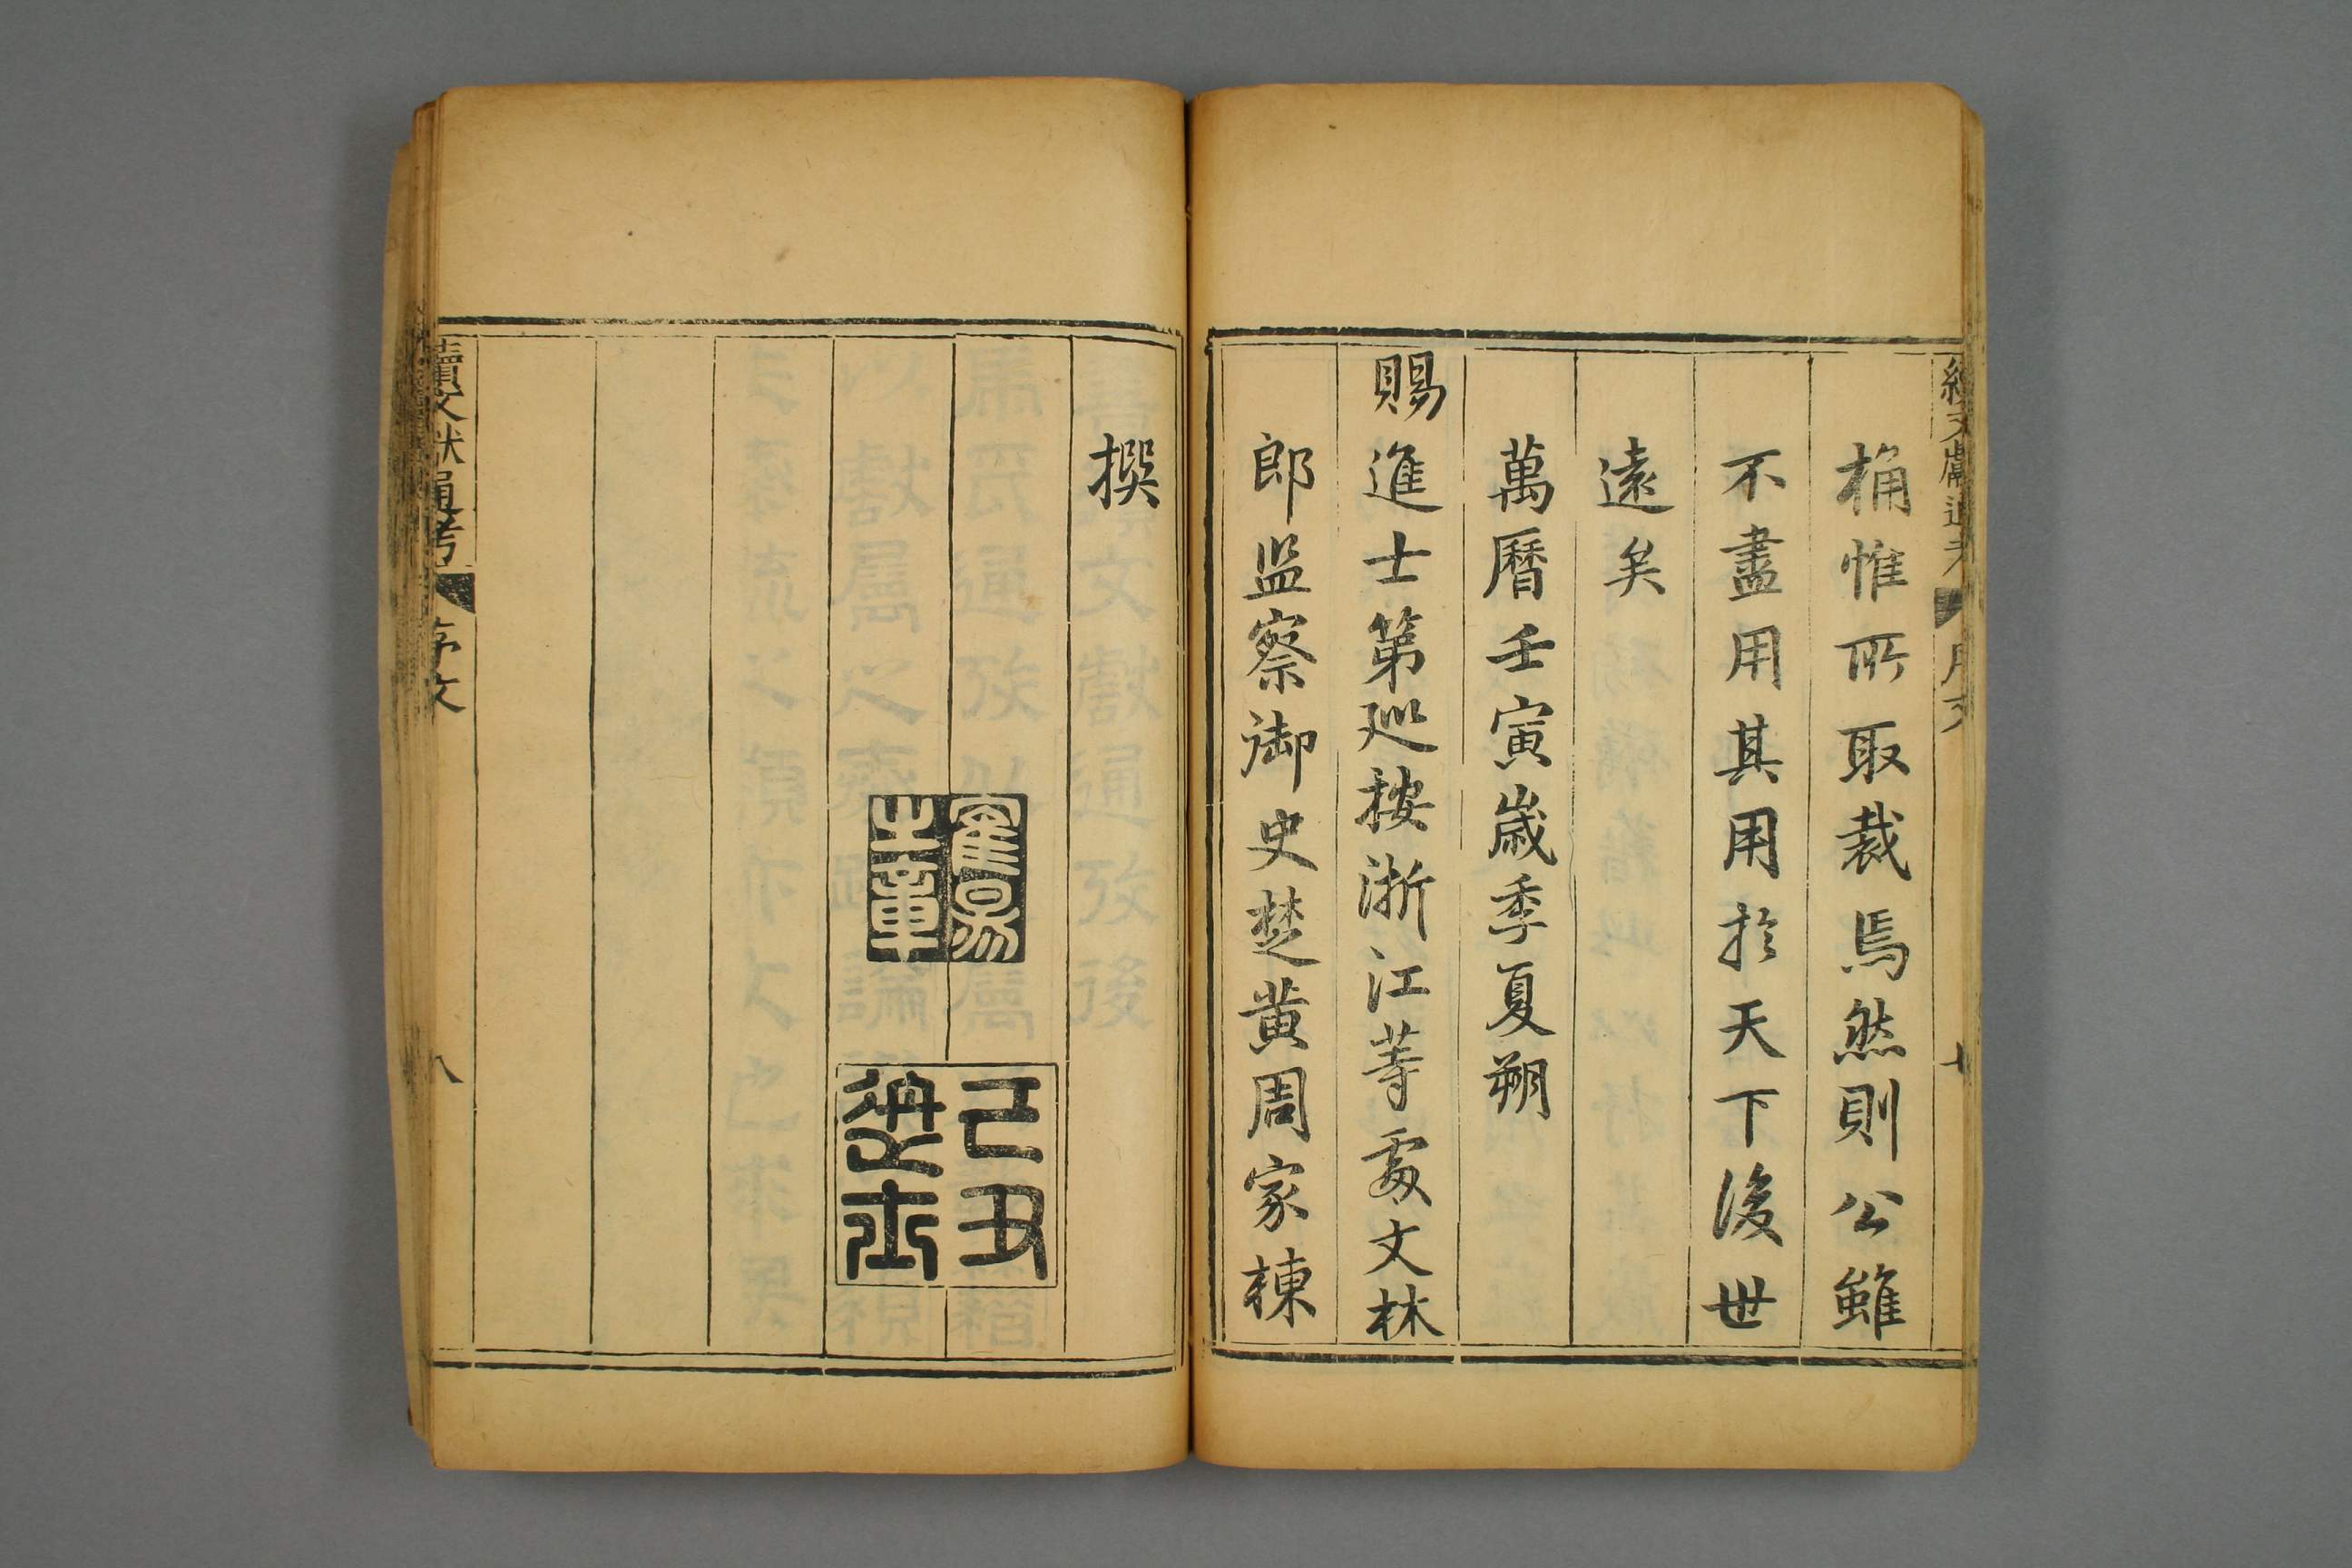 續文獻通考 序文 七
桷惟所取裁焉然則公雖
不盡用其用於天下後世
遠矣
萬曆壬寅歲季夏朔
賜進士第巡按浙江等處文林
郎監察御史楚黃周家棟
撰
己丑
進士
續文獻通考 序文 八